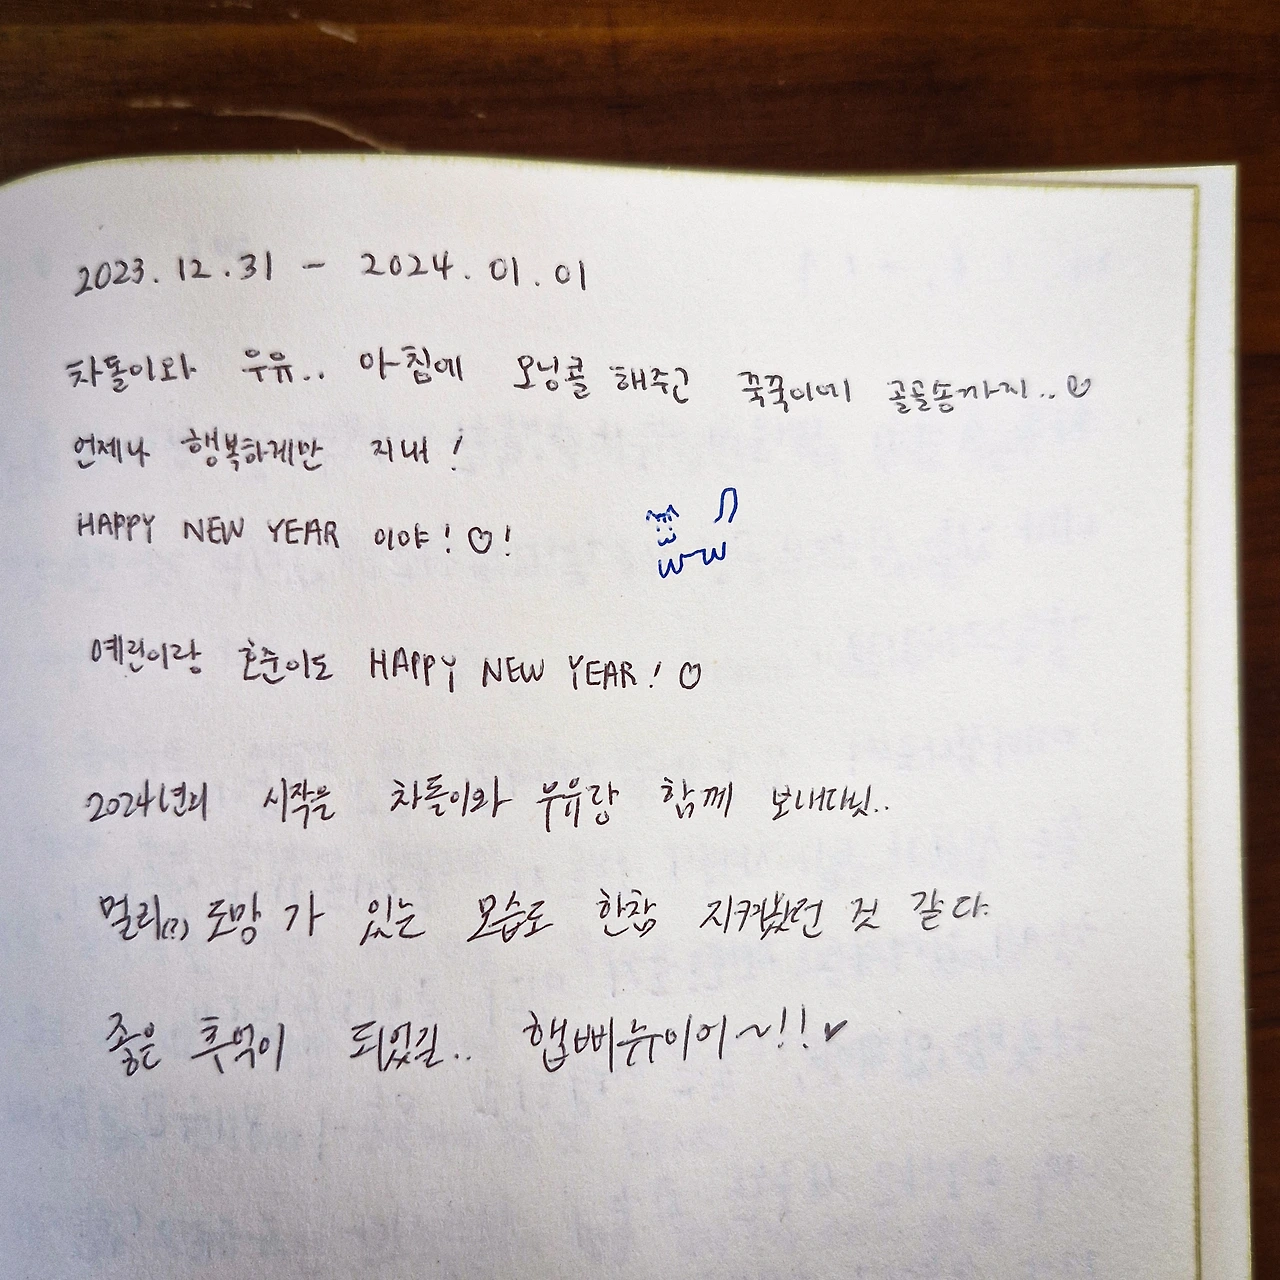 2023.12.31 - 2024.01.01
차돌이와 우유.. 아침에 모닝콜 해주고 꾹꾹이에 골골송까지..♡
언제나 행복하게만 지내!
HAPPY NEW YEAR 이야!♡!
예린이랑 호준이도 HAPPY NEW YEAR! ♡
2024년의 시작을 차돌이와 우유랑 함께 보내다닛..
멀리(?) 도망가 있는 모습도 한참 지켜봤던 것 같다.
좋은 추억이 되었길.. 햅삐뉴이어~!!♥